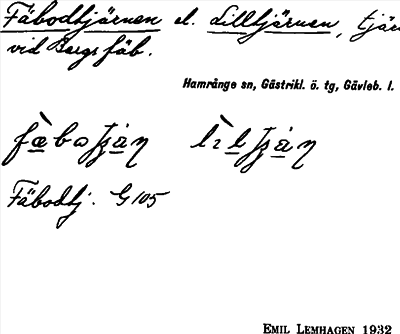 Fäbodtjärnen el. Lilltjärnen, tjär
vid Bergs fäb.
Hamrånge sn, Gästrikl. ö. tg, Gävleb. l.
Fäbodtj. G 105
EMIL LEMHAGEN 1932